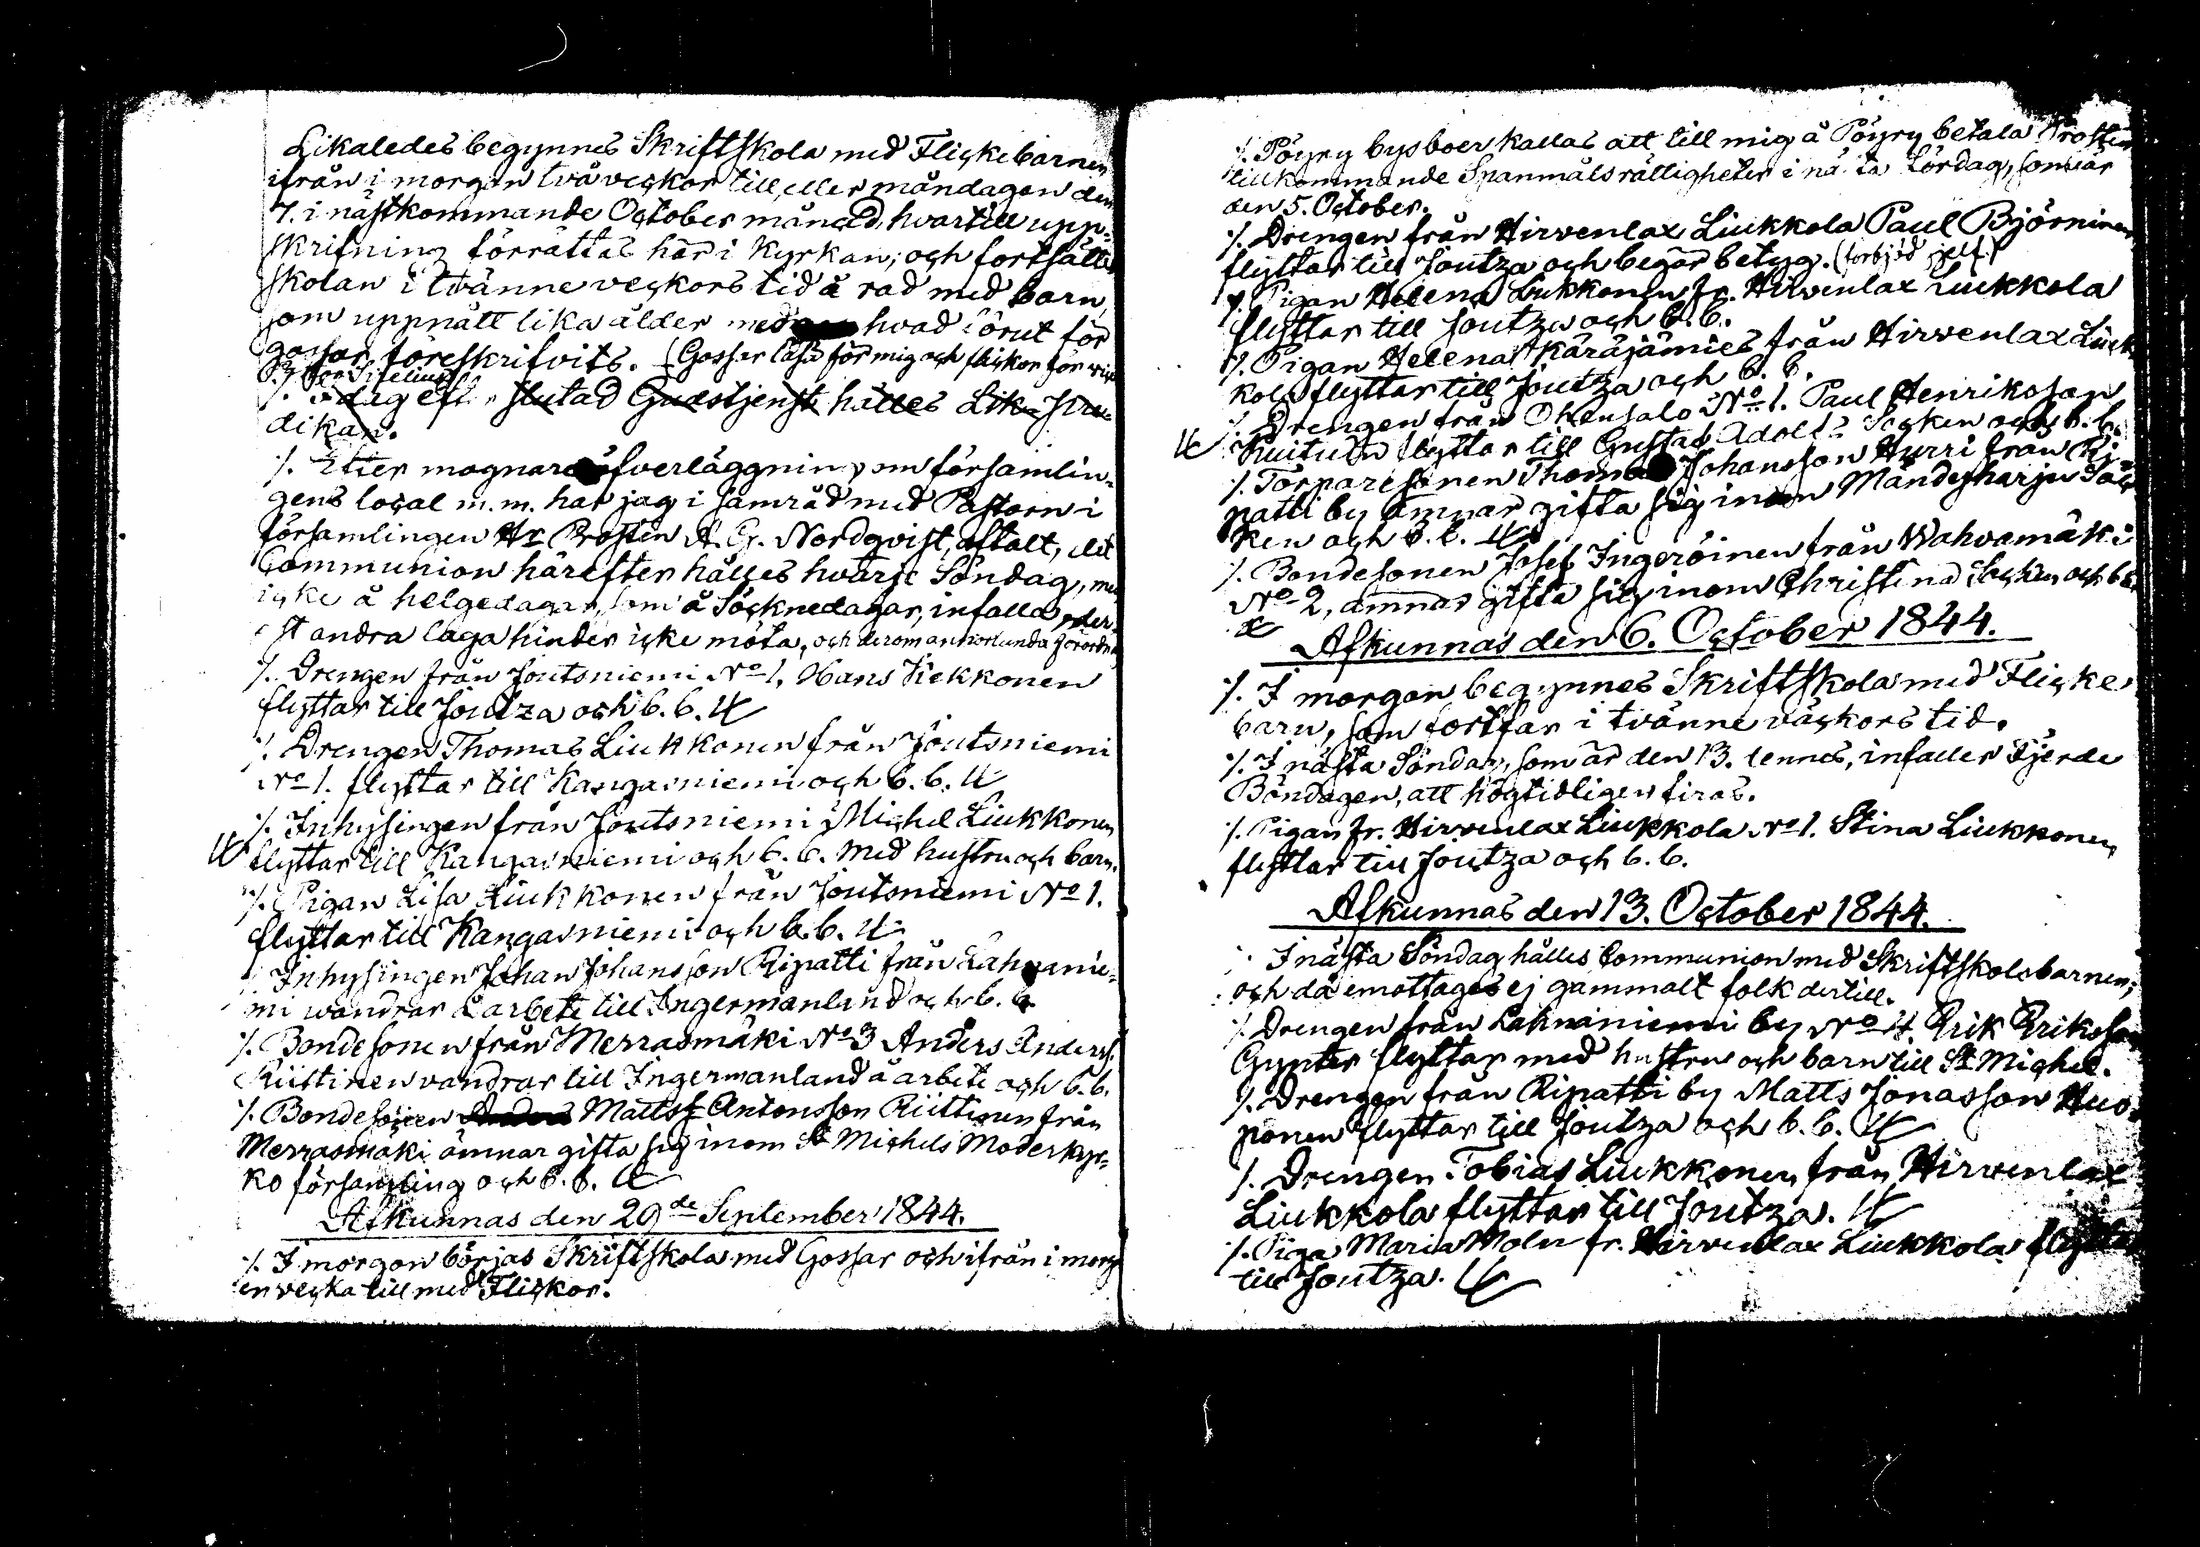 Likaledes begynnes Skriftskola med Flickebarnen
ifrån i morgon två veckor till, eller måndagen den
7. i nästkommande October månad, hvartill upp-
skrifning förrättas här i Kyrkan; och fortsättes
skolan i tvänne veckors tid å rad med barn,
som uppnått lika ålder med hvad förut för
gossar föreskrifvits. (Gossar läsa för mig och flickor för
./. I dag eft. slutad Gudstjenst hålles Lik-
dikan.
./. Efter mognare öfverläggning om församlin-
gens local m.m. har jag i samråd med Pastorn i
församlingen Hr Prosten A. G. Nordqvist, aftalt, att
Communion härefter hålles hvarje Söndag, men
icke å helgedagar, som å Söcknedagar, infalla, der-
st andra laga hinder icke möta, och derom annorlunda förordn
./. Drengen från Joutsniemi No 1. Hans Kekkonen
flyttar till Joutza och b. b.
./. Drengen Thomas Liukkonen från Joutsniemi
No 1. flyttar till Kangasniemi och b. b.
./. Inhysingen från Joutsniemi Michel Liukkonen
flyttar till Kangasniemi och b. b. med hustru och barn.
./. Pigan Lisa Liukkonen från Joutsniemi No 1.
flyttar till Kangasniemi och b. b.
./. Inhysingen Johan Johansson Ripatti från Lahnanie-
mi wandrar å arbete till Ingermanland och b. b.
./. Bondesonen från Merrasmäki No 3 Anders Anderss.
Riittinen vandrar till Ingermanland å arbete och b. b.
./. Bondesonen Matts Antonsson Riittinen från
Merrasmäki ämnar gifta sig inom St Michels Moderkyr-
ko församling och b. b.
Afkunnas den 29de September 1844.
./. I morgon börjas Skriftskola med Gossar och ifrån i morg
en vecka till med Flickor.
./. Pöyry bysboer kallas att till mig å Pöyry betala Prosten
tillkommande Spanmåls rättigheter i nästa Lördag, som är
den 5. October.
./. Drengen från Hirvenlax Liukkola Paul Björninen
flyttar till Joutza och begär betyg. (förbjöd sjelf.)
./. Pigan Helena Liukkonen fr. Hirvenlax Liukkola
flyttar till Joutza och b. b.
./. Pigan Helena Käräjämies från Hirvenlax Liuk-
kola flyttar till Joutza och b. b.
./. Drengen från Ohensalo No 1. Paul Henriksson
Kuitunen flyttar till Gustaf Adolfs Socken och b. b.
./. Torparesonen Thomas Johansson Hurri från Ri-
patti by ämnar gifta sig inom Mändyharju Soc-
ken och b. b.
./. Bondesonen Josef Ingeröinen från Wahvamäki
No 2, ämnar gifta sig inom Christina Socken och b. b.
Afkunnas den 6. October 1844.
./. I morgon begynnes Skriftskola med Flicke-
barn, som fortfar i tvänne väckors tid.
./. I nästa Söndag, som är den 13. dennes, infaller Fjerde
Böndagen, att högtidligen firas.
./. Pigan fr. Hirvenlax Liukkola No 1. Stina Liukkonen
flyttar till Joutza och b. b.
Afkunnas den 13. October 1844.
./. I nästa Söndag hålles Communion med Skriftskolsbarnen;
och då emottages ej gammalt folk dertill.
./. Drengen från Lahnaniemi by No 4. Erik Eriksson
Gynter flyttar med hustru och barn till St Michel.
./. Drengen från Ripatti by Matts Jonasson Huo-
ponen flyttar till Joutza och b. b.
./. Drengen Tobias Liukkonen från Hirvenlax
Liukkola flyttar till Joutza.
./. Piga Maria fr. Hirvenlax Liukkola flyttar
till Joutza.